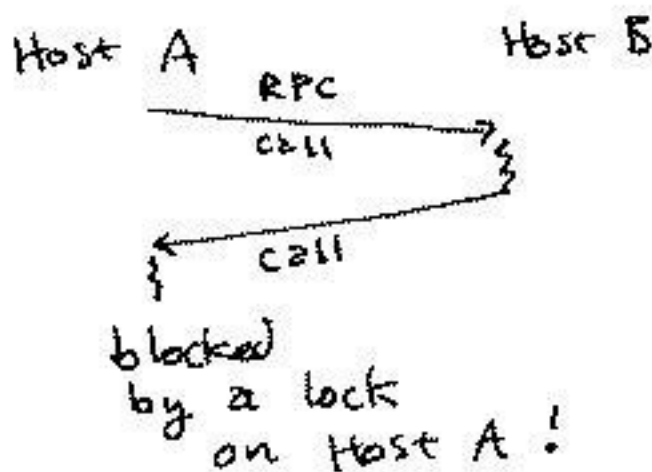 Host A
Host B
RPC
call
call
blocked
by a lock
on Host A !